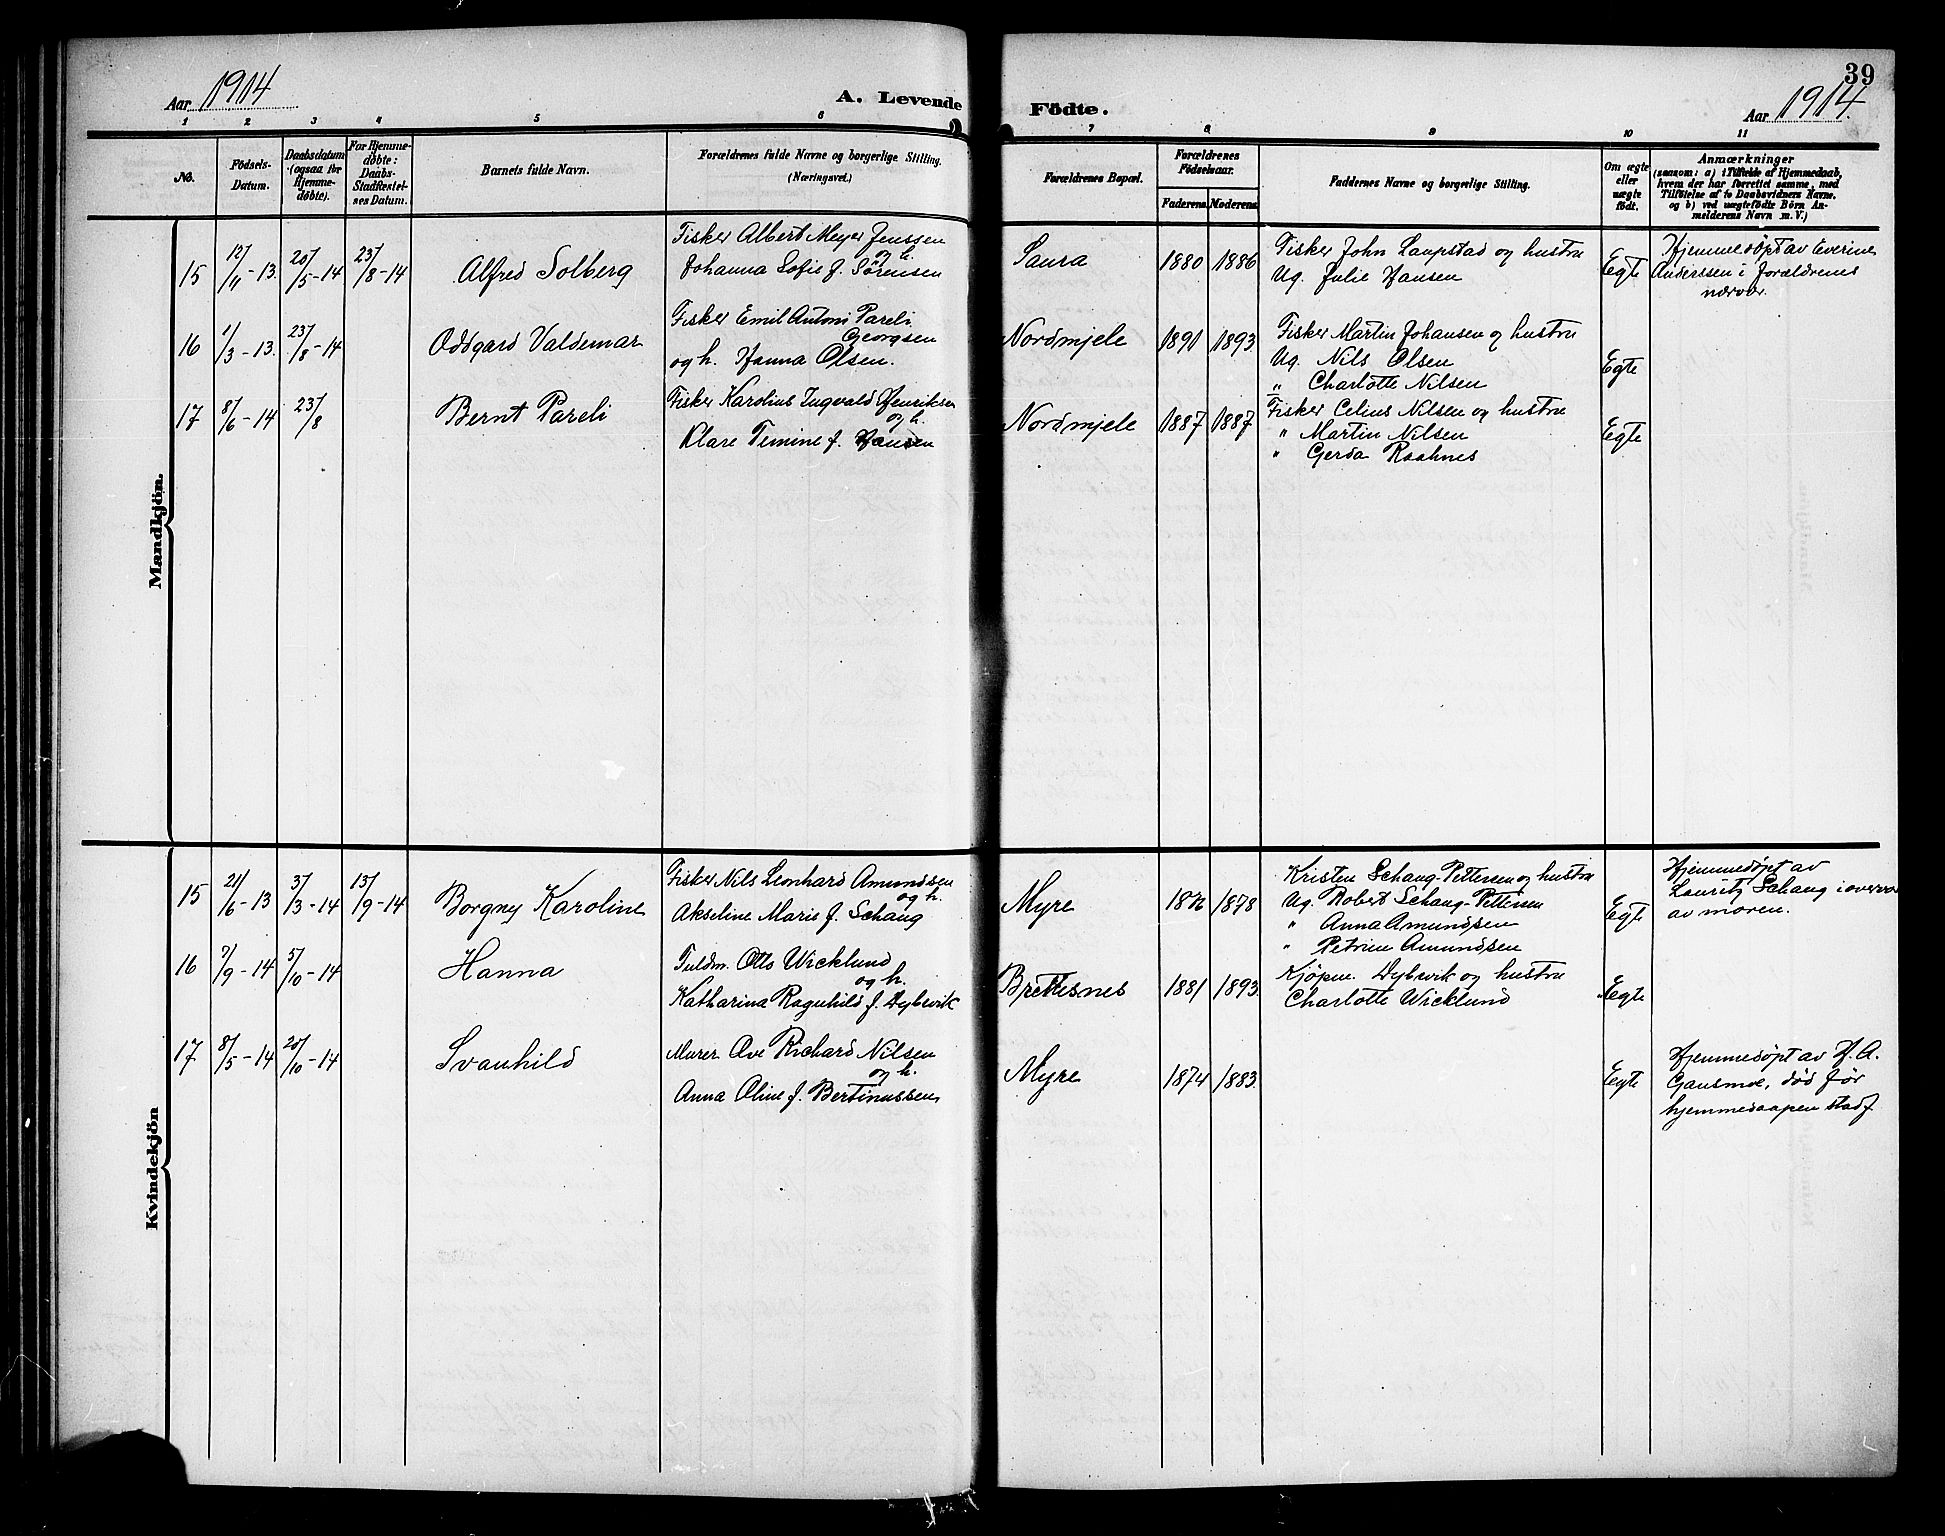 39
Aar 1914
A. Levende Födte.
Aar 1914.
1 2 3 4 5 6 7 8 9 10 11
No.
Födsels-
Datum.
Daabsdatum
(ogsaa for
Hjemme-
døbte).
For Hjemme-
døbte:
Daabs-
Stadfæstel-
ses Datum.
Barnets fulde Navn.
Forældrenes fulde Navne og borgerlige Stilling.
(Næringsvei.)
Forældrenes Bopæl.
Forældrenes
Födselsaar.
Faderens. Moderens.
Faddernes Navne og borgerlige Stilling.
Om ægte
eller
uægte
født.
Anmærkninger
(saasom: a) i Tilfælde af Hjemmedaab,
hvem der har forrettet samme, med
Tilföielse af to Daabsvidners Navne,
og b) ved uægtefödte Börn An-
melderens Navn m. V.)
Mandkjön.
15
12/11-13.
20/5-14
23/8-14
Alfred Solberg
Fisker Albert Meyer Jenssen
og h.
Johanna Sofie f. Sørensen
Saura
1880
1886
Fisker John Laupstad og hustru
Ug. Julie Hansen
Egte
Hjemmedøpt av Everine
Anderssen i forældrenes
nærvær.
16
1/3-13.
23/8-14
Oddgard Valdemar
Fisker Emil Antoni Pareli
Georgsen
og h. Hanna Olsen.
Nordmjele
1891
1893
Fisker Martin Johansen og hustru
Ug. Nils Olsen
" Charlotte Nilsen
Egte
17
8/6-14
23/8
Bernt Pareli
Fisker Karolius Ingvald Henriksen
og h.
Klare Temine f. Hansen
Nordmjele
1887
1887
Fisker Celius Nilsen og hustru
" Martin Nilsen
" Gerda Raahnes
Egte
Kvindekjön
15
21/6-13
3/3-14
13/9-14
Borgny Karoline
Fisker Nils Leonhard Amundsen
og h.
Akseline Marie f. Schang
Myre
1878
Kristen Schang-Pettersen og hustru
Ug. Robert Schang-Pettersen
" Anna Amundsen
" Petrine Amundsen
Egte
Hjemmedøpt av
Lauritz Schang i overvær
av moren.
16
7/9-14
5/10-14
Hanna
Fuldm. Otto Wicklund
og h.
Katharina Ragnhild f. Dybwik
Brettesnes
1881
1893
Kjøpm. Dybwik og hustru
Charlotte Wicklund
Egte
17
8/5-14
20/10-14
Svanhild
Murer Ove Richard Nilsen
og h.
Anna Oline f. Bertinussen
Myre
1874
1883
Egte
Hjemmedøpt av H. A.
Gausmoe, død før
hjemmedaapen stadf.